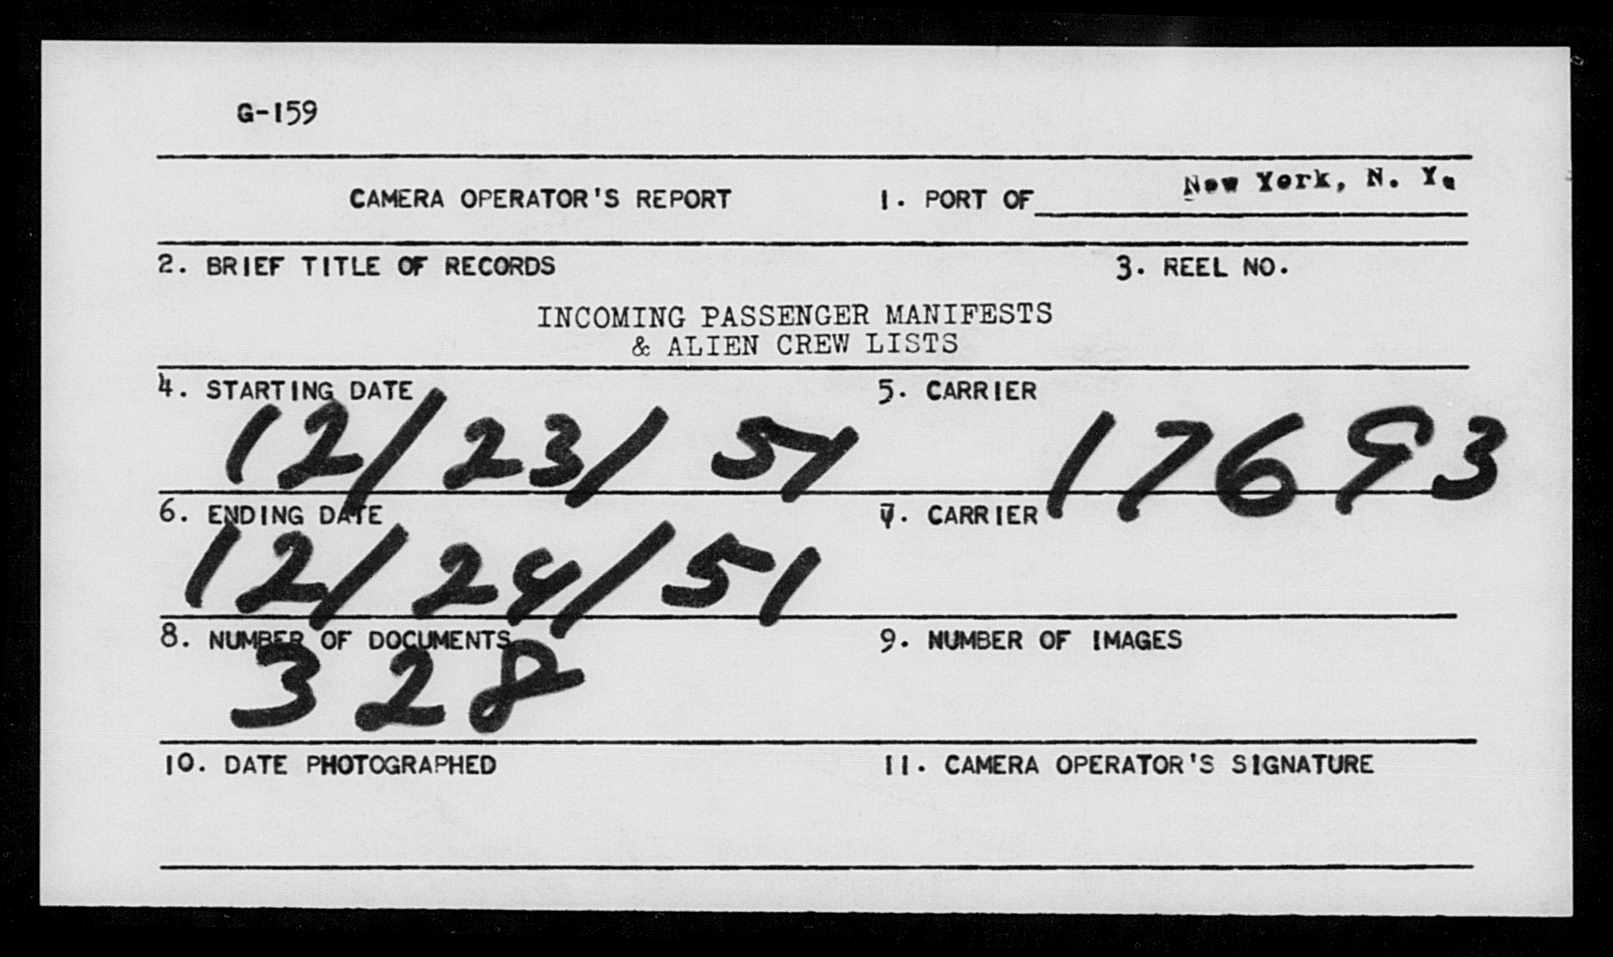 G-159
CAMERA OPERATOR'S REPORT 1. PORT OF New York, N. Y.
2. BRIEF TITLE OF RECORDS 3. REEL NO.
INCOMING PASSENGER MANIFESTS
& ALIEN CREW LISTS
4. STARTING DATE 5. CARRIER
12/23/51 17693
6. ENDING DATE 7. CARRIER
12/24/51
8. NUMBER OF DOCUMENTS 9. NUMBER OF IMAGES
328
10. DATE PHOTOGRAPHED 11. CAMERA OPERATOR'S SIGNATURE